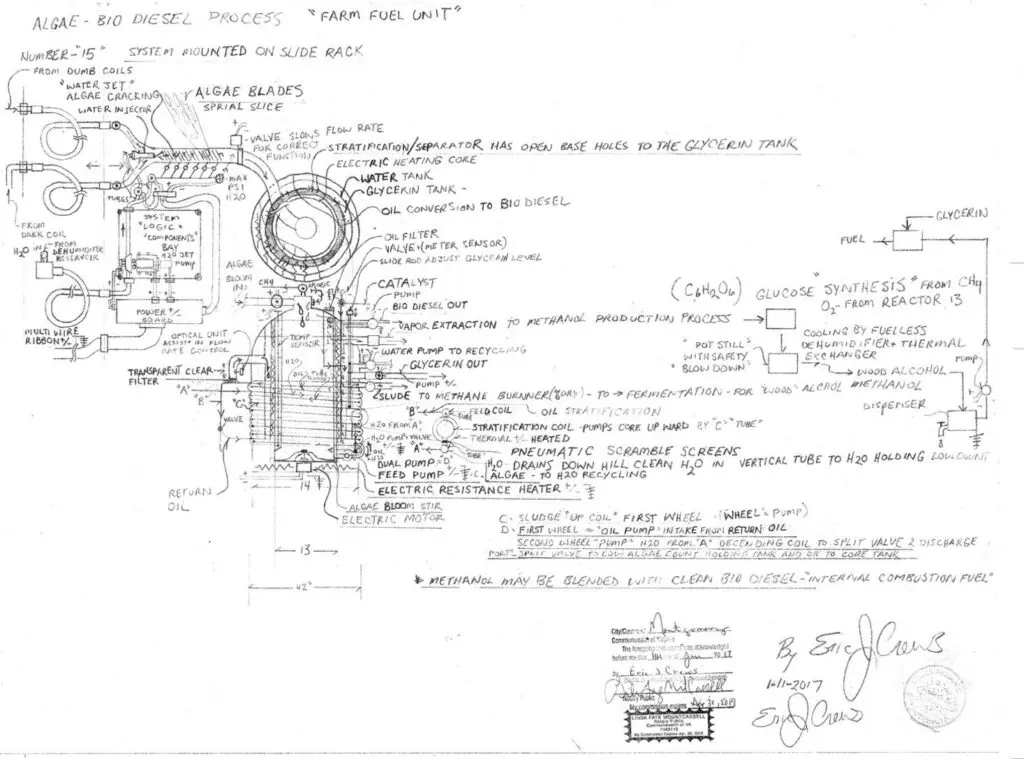 ALGAE - BIO DIESEL PROCESS "FARM FUEL UNIT"
NUMBER - "15" SYSTEM MOUNTED ON SLIDE RACK
FROM DUMB COILS
"WATER JET"
ALGAE CRACKING
WATER INJECTOR
ALGAE BLADES
SPRIAL SLICE
VALVE SLOWS FLOW RATE
FOR CORRECT
FUNCTION
STRATIFICATION/SEPARATOR HAS OPEN BASE HOLES TO THE GLYCERIN TANK
ELECTRIC HEATING CORE
WATER TANK
GLYCERIN TANK -
OIL CONVERSION TO BIO DIESEL
MAX
PSI
H2O
TUBES
SYSTEM
"LOGIC"
"COMPONENTS"
BAY
H2O JET
PUMP
FROM
DARK COIL
H2O IN
FROM
DEHUMIDIFER
RESERVOIR
POWER +/-
BOARD
MULTI WIRE
RIBBON +/-
OIL FILTER
VALVE + (METER SENSOR)
SLIDE ROD ADJUST GLYCERIN LEVEL
ALGAE
BLOOM
IN
CH4
CATALYST
PUMP
BIO DIESEL OUT
VAPOR EXTRACTION TO METHANOL PRODUCTION PROCESS
OPTICAL UNIT
ASSIST IN FLOW
RATE CONTROL
TEMP
SENSOR
H2O
WATER PUMP TO RECYCLING
GLYCERIN OUT
PUMP +/-
TRANSPARENT CLEAR
FILTER
"A"
"B"
"C"
VALVE
SLUDE TO METHANE BURNNER (%DRY) - TO → FERMENTATION - FOR "WOOD" ALCHOL METHANOL
"B" FEED COIL OIL STRATIFICATION
TUBE
H2O FROM "A"
STRATIFICATION COIL - PUMPS CORE UP WARD BY "C" "TUBE"
THERMAL +/- HEATED
H2O PUMP + VALVE
"A"
TUBE
PNEUMATIC SCRAMBLE SCREENS
DUAL PUMP = "D"
FEED PUMP +/- "C"
H2O - DRAINS DOWN HILL CLEAN H2O IN VERTICAL TUBE TO H2O HOLDING LOW COUNT
ALGAE - TO H2O RECYCLING
ELECTRIC RESISTANCE HEATER +/-
RETURN
OIL
14
ALGAE BLOOM STIR
ELECTRIC MOTOR
13
42"
GLYCERIN
FUEL
(C6H2O6) GLUCOSE "SYNTHESIS" FROM CH4
O2 - FROM REACTOR 13
COOLING BY FUELLESS
DEHUMIDIFIER + THERMAL
EXCHANGER
"POT STILL"
WITH SAFETY
"BLOW DOWN"
WOOD ALCOHOL
METHANOL
DISPENSER
PUMP
C - SLUDGE "UP COIL" FIRST WHEEL (WHEEL = PUMP)
D - FIRST WHEEL = "OIL PUMP" INTAKE FROM RETURN OIL
SECOND WHEEL "PUMP" H2O FROM "A" DECENDING COIL TO SPLIT VALVE 2 DISCHARGE
PORT - SPLIT VALVE TO LOW ALGAE COUNT HOLDING TANK AND OR TO CORE TANK
* METHANOL MAY BE BLENDED WITH CLEAN BIO DIESEL - "INTERNAL COMBUSTION FUEL"
City/County Montgomery
Commonwealth of
The foregoing acknowledged
before me this 2017
by Eric J Crews
Notary Public
My commission expires
LINDA FAYE MOUNTCASSELL
Notary Public
Commonwealth of VA
By Eric J Crews
2017
Eric J Crews